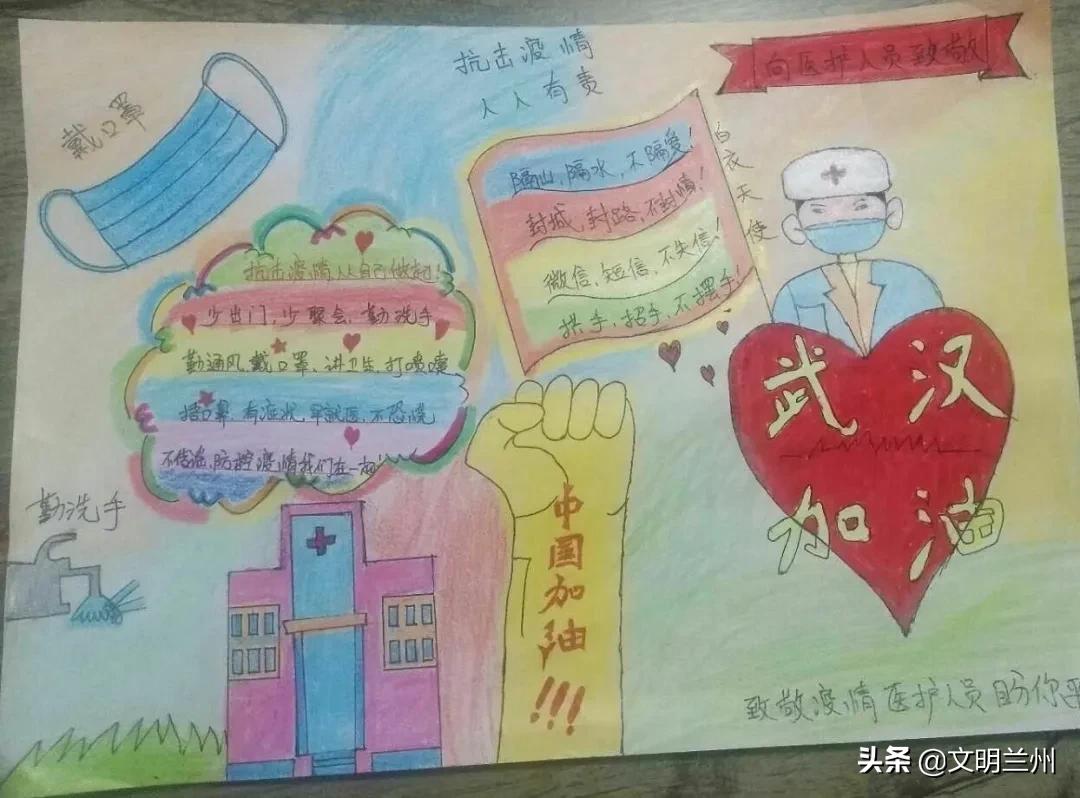 戴口罩
抗击疫情
人人有责
向医护人员致敬
白衣天使
隔山,隔水,不隔爱!
封城,封路,不封情!
微信,短信,不失信!
拱手,招手,不摆手!
抗击疫情从自己做起!
少出门,少聚会,勤洗手
勤通风,戴口罩,讲卫生,打喷嚏
捂口鼻,有症状,早就医,不恐慌
不传谣,防控疫情我们在一起!
武汉
加油
中国加油!!!
勤洗手
致敬疫情医护人员 盼你平
头条 @文明兰州